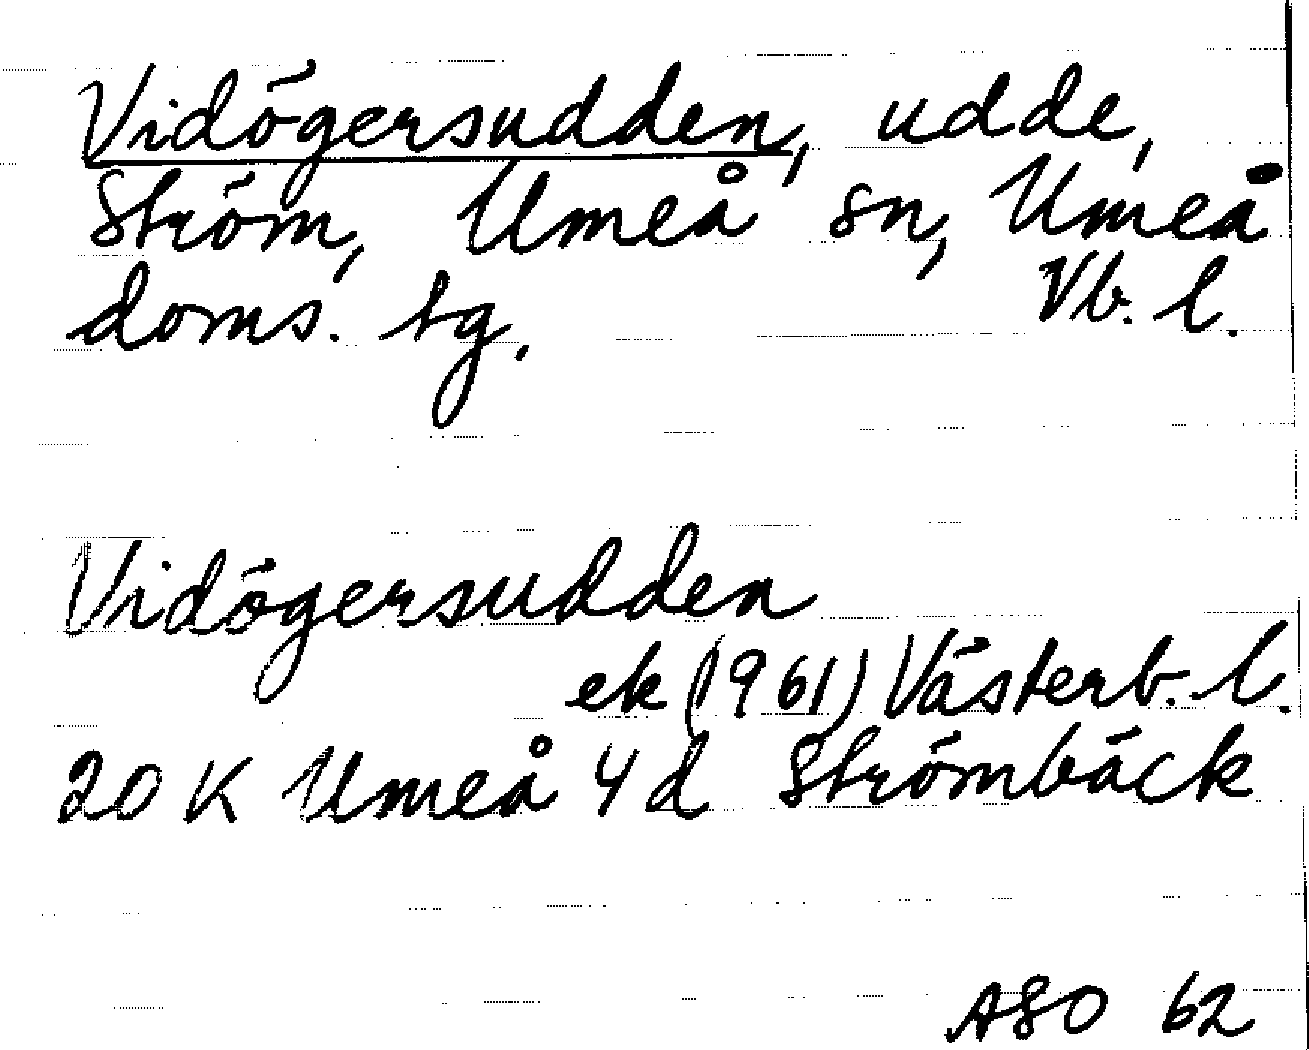 Vidögersudden, udde,
Ström, Umeå sn, Umeå
doms. tg. Vb. l.
Vidögersudden
ek (1961) Västerb. l.
20 K Umeå 4 d Strömbäck
ASO 62